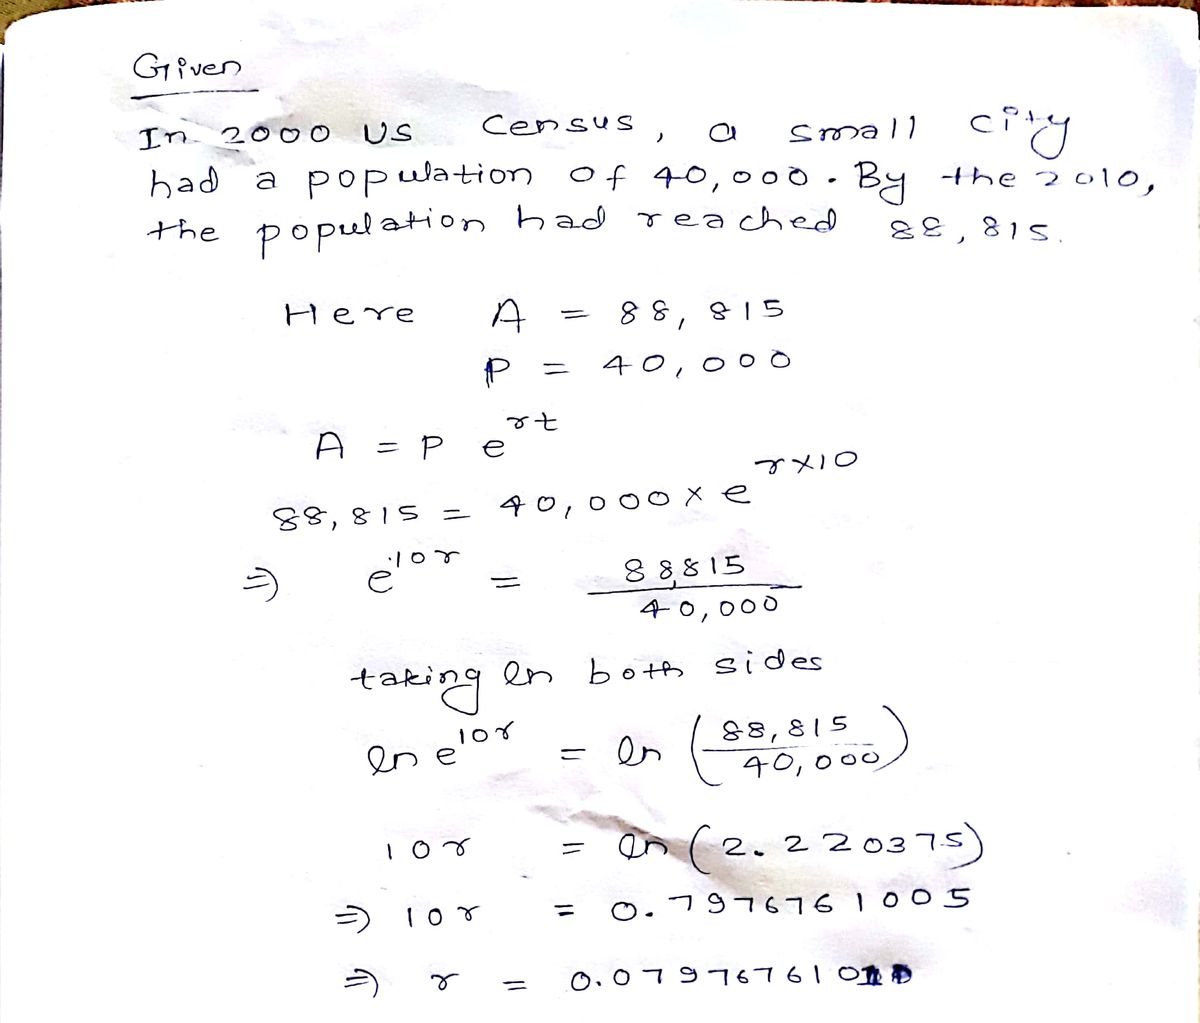 Given
In 2000 US Census, a small city
had a population of 40,000. By the 2010,
the population had reached 88,815.
Here A = 88,815
P = 40,000
A = P e^rt
88,815 = 40,000 × e^r×10
⇒ e^10r = 88815/40,000
taking ln both sides
ln e^10r = ln (88,815/40,000)
10r = ln (2.220375)
⇒ 10r = 0.7976761005
⇒ r = 0.079767610